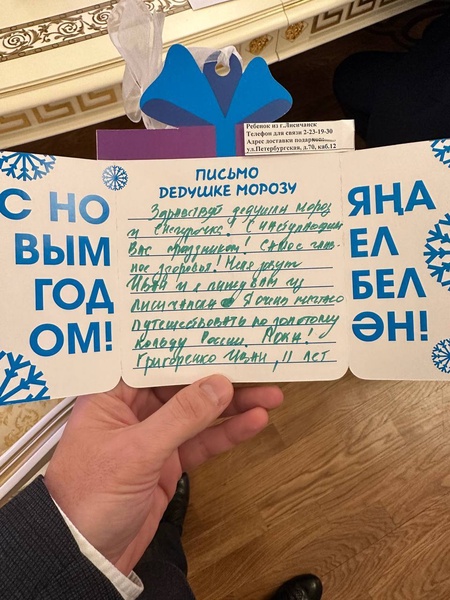 Ребенок из г.Лисичанск
Телефон для связи 2-23-19-30
Адрес доставки подарков:
ул.Петербургская, д.70, каб.12
С НО
ВЫМ
ГОД
ОМ!
ПИСЬМО
DЕДУШКЕ МОРОЗУ
Здравствуй дедушка мороз
и Снегурочка! С наступающим
Вас праздником! Самое глав-
ное здоровья! Меня зовут
Иван и я пишу вам из
Лисичанска Я очень мечтаю
путешествовать по золотому
кольцу России.
Григоренко Иван, 11 лет
ЯҢА
ЕЛ
БЕЛ
ӘН!